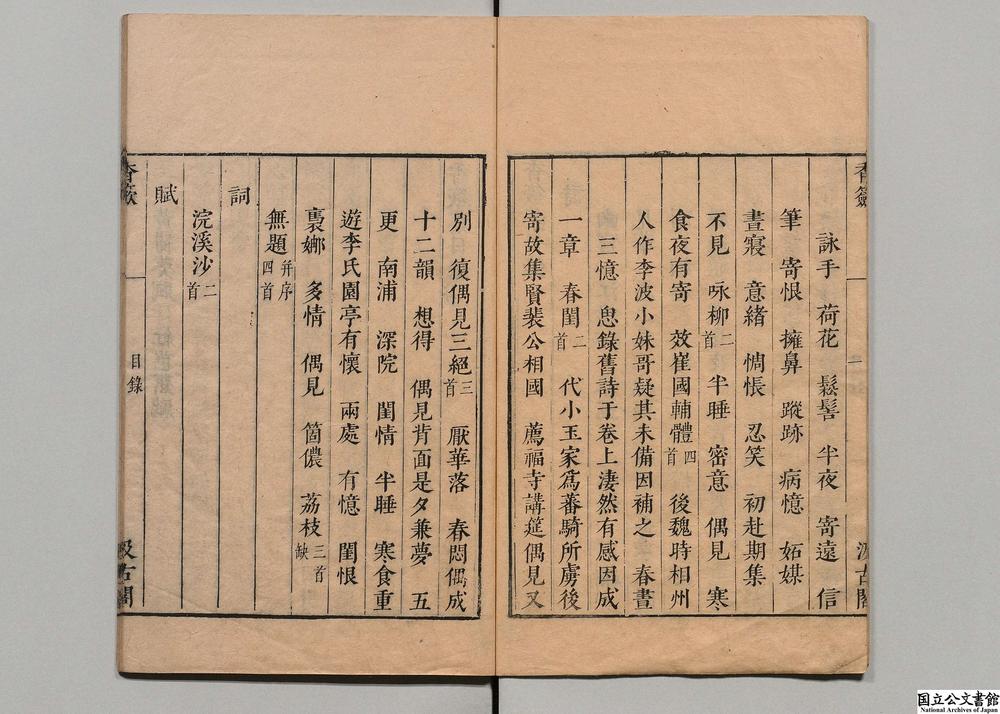 香籢
汲古閣
詠手　荷花　鬆髻　半夜　寄遠　信
筆　寄恨　擁鼻　蹤跡　病憶　妬媒
晝寢　意緒　惆悵　忍笑　初赴期集
不見　咏柳二首　半睡　密意　偶見　寒
食夜有寄　效崔國輔體四首　後魏時相州
人作李波小妹哥疑其未備因補之　春晝
三憶　思錄舊詩于卷上淒然有感因成
一章　春閨二首　代小玉家爲蕃騎所虜後
寄故集賢裴公相國　薦福寺講筵偶見又
別　復偶見三絕三首　厭華落　春悶偶成
十二韻　想得　偶見背面是夕兼夢　五
更　南浦　深院　閨情　半睡　寒食重
遊李氏園亭有懷　兩處　有憶　閨恨
裹娜　多情　偶見　箇儂　荔枝三首缺
無題幷序四首
詞
浣溪沙二首
賦
香籢
目錄
汲古閣
国立公文書館
National Archives of Japan